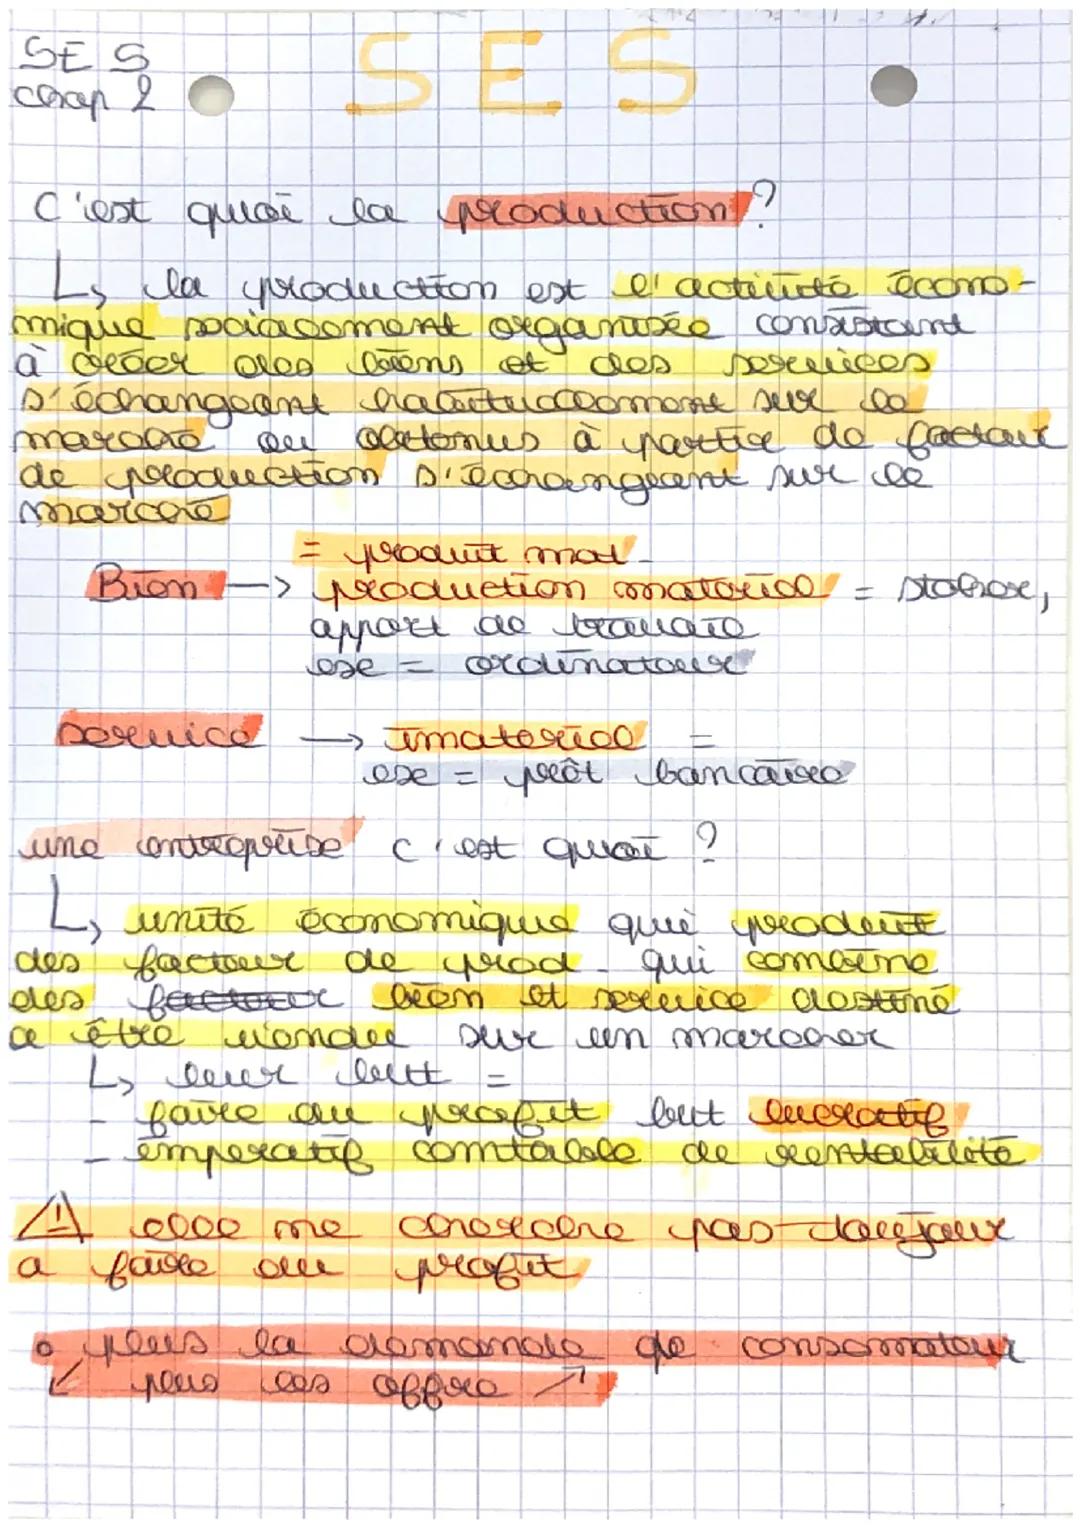 SES
SES
chap 2
C'est quoi la production ?
↳ la production est l'activité écono-
mique socialement organisée consistant
à créer des biens et des services
s'échangeant habituellement sur le
marché ou obtenus à partir de facteur
de production s'échangeant sur le
marché
= produit mat.
Bien → production matériel = stoker,
apport de travail
exe = ordinateur
service → imatériel =
exe = prêt bancaire
une entreprise c'est quoi ?
↳ unité économique qui produit
des facteur de prod. qui combine
des facteur bien et service destiné
a être vendu sur un marcher
↳ leur butt =
- faire du profit but lucratif
- imperatif comtable de rentabilité
⚠ elle ne cherche pas toujour
a faire du profit
o plus la demande de consomateur
↙ plus les offre ↗